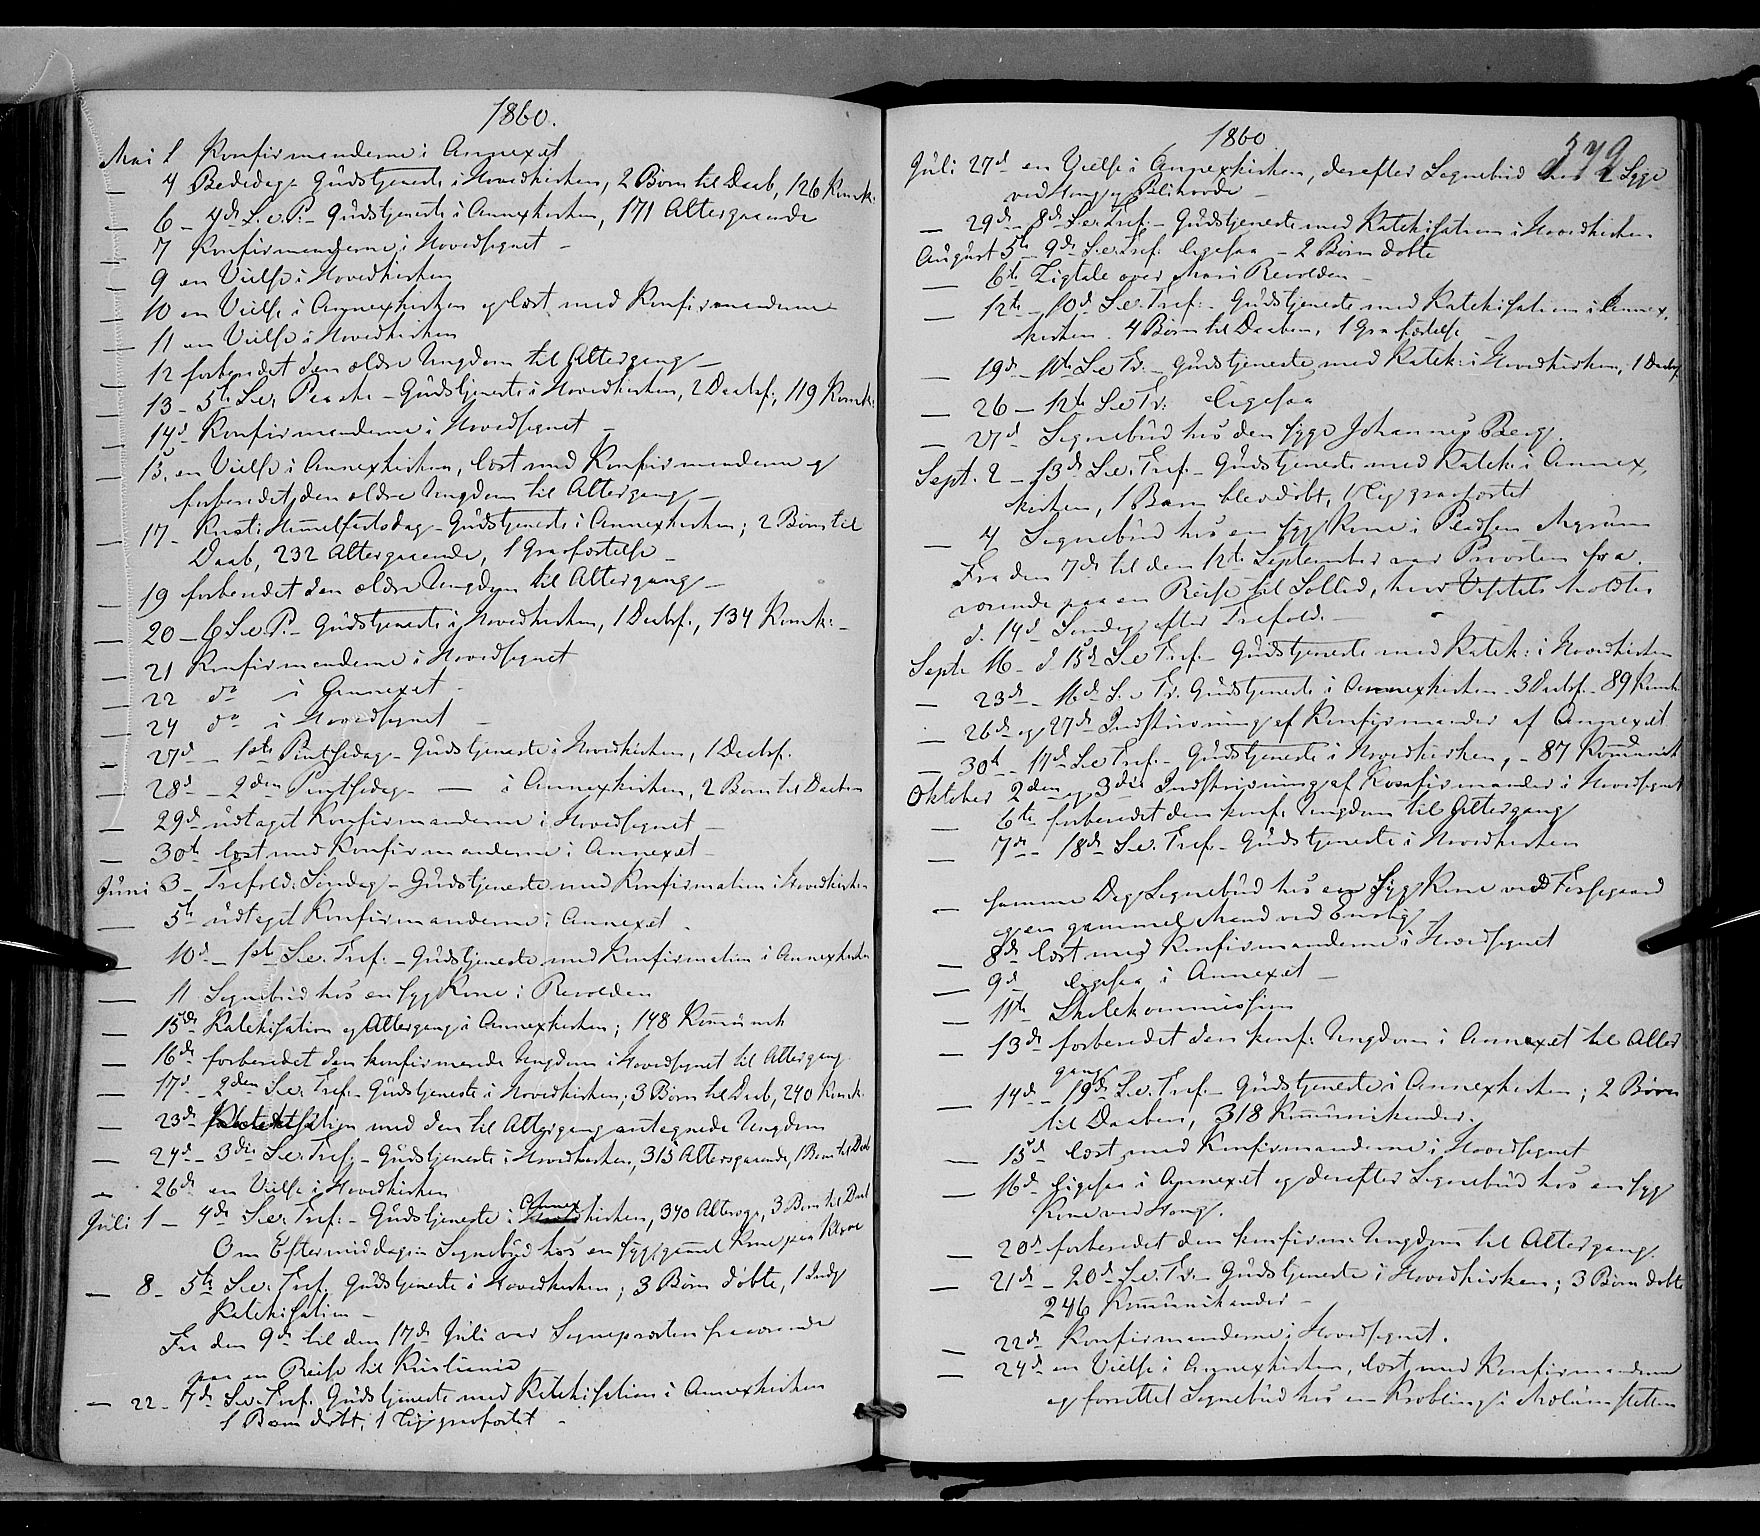 1860.
Mai 1 Konfirmanderne i Annexet
— 4 Bededag Gudstjeneste i Hovedkirken, 2 Børn til Daab, 126 Komk:
— 6 – 4de S. e. P. – Gudstjeneste i Annexkirken, 171 Altergaaende
— 7 Konfirmanderne i Hovedsognet –
— 9 en Vielse i Hovedkirken
— 10 en Vielse i Annexkirken og læst med Konfirmanderne
— 11 en Vielse i Hovedkirken
— 12 forberedet den ældre Ungdom til Altergang –
— 13 – 5te S. e. Paaske – Gudstjeneste i Hovedkirken, 2 Daabsf., 119 Komk:
— 14d Konfirmanderne i Hovedsognet –
— 15. en Vielse i Annexkirken, læst med Konfirmanderne og
forberedet den ældre Ungdom til Altergang –
— 17 – Kristi Himmelfartsdag – Gudstjeneste i Annexkirken; 2 Børn til
Daab, 232 Altergaaende, 1 Grafæstelse –
— 19 forberedet den ældre Ungdom til Altergang –
— 20 – 6 S. e. P. – Gudstjeneste i Hovedkirken, 1 Daabsf., 134 Komk: –
— 21 Konfirmanderne i Hovedsognet
— 22 do i Annexet –
— 24 do i Hovedsognet –
— 27d – 1ste Pintsedag – Gudstjeneste i Hovedkirken, 1 Daabsf.
— 28d – 2den Pintsedag – — i Annexkirken, 2 Børn til Daaben
— 29d udtaget Konfirmanderne i Hovedsognet –
— 30te læst med Konfirmanderne i Annexet –
Juni 3 – Trefold. Søndag – Gudstjeneste med Konfirmation i Hovedkirken
— 5te udtaget Konfirmanderne i Annexet.
— 10d – 1ste S. e. Tref. – Gudstjeneste med Konfirmation i Annexkirken
— 11 Sognebud hos en syg Kone i Revolden
— 15de Katekisation og Altergang i Annexkirken; 148 Kommunik
— 16de forberedet den konfirmerede Ungdom i Hovedsognet til Altergang
— 17d – 2den S. e. Tref. – Gudstjeneste i Hovedkirken; 3 Børn til Daab, 240 Komk.
— 23de Katekisation med den til Altergang antegnede Ungdom
— 24d – 3die S. e. Tref. – Gudstjeneste i Hovedkirken, 315 Altergaaende, 1 Barn til Daab
— 26de en Vielse i Hovedkirken
Juli 1 – 4de S. e. Tref. – Gudstjeneste i Annexkirken, 340 Alterg., 3 Børn til Daab
Om Eftermiddagen Sognebud hos en syg gammel Kone paa
— 8 – 5te S. e. Tref. Gudstjeneste i Hovedkirken; 3 Børn døbte,
Katekisation –
Fra den 9de til den 17de Juli var Sognepræsten fraværende
paa en Reise til Kristiania
— 22 – 7de S. e. Tref. Gudstjeneste med Katekisation i Annexkirken
1 Barn døbt, 1 Lig grafæstet –
1860
Juli 27d en Vielse i Annexkirken, derefter Sognebud hos 2 Syge
ved Hong og
— 29de – 8de S. e. Tref. – Gudstjeneste med Katekisation i Hovedkirken
August 5te – 9de S. e. Tref. ligesaa – 2 Børn døbte
— 6te Ligtale over Mari Revolden –
— 12te – 10d S. e. Tref. – Gudstjeneste med Katekisation i Annex,
kirken. 4 Børn til Daaben, 1 Grafæstelse –
— 19d – 11te S. e. Tr. – Gudstjeneste med Katek. i Hovedkirken, 1 Daabsf.
— 26 – 12te S. e. Tr. ligesaa
— 27d Sognebud hos den syge Johannes Berg.
Sept. 2 – 13de S. e. Tref. – Gudstjeneste med Katek. i Annex,
kirken, 1 Barn blev døbt, 1 Lig grafæstet
— 4 Sognebud hos en syg Kone i Pladsen
Fra den 7de til den 12te September var Provsten fra,
værende paa en Reise til Solleid, hvor Visitats holdtes
d. 14d Søndag efter Trefold. –
Septr 16 – d 15de S. e. Tref. – Gudstjeneste med Katek: i Hovedkirken
— 23de – 16d. S. e. Tr. Gudstjeneste i Annexkirken. 3 Daabsf. 89 Komk.
— 26de og 27de Indskrivning af Konfirmander af Annexet
— 30te – 17d S. e. Tref. – Gudstjeneste i Hovedkirken, – 87 Kommunik
Oktober 2den og 3die Indskrivning af Konfirmander i Hovedsognet
— 6te forberedet den konf. Ungdom til Altergang
— 7de – 18de S. e. Tref. – Gudstjeneste i Hovedkirken
— samme Dag Sognebud hos en syg Kone ved
og en gammel Mand ved
— 8de læst med Konfirmanderne i Hovedsognet
— 9d ligesaa i Annexet –
— 11te Skolekommission
— 13de forberedet den konf. Ungdom i Annexet til Alter
gang
— 14de – 19de S. e. Tref. – Gudstjeneste i Annexkirken; 2 Børn
til Daaben, 318 Kommunikander.
— 15d læst med Konfirmanderne i Hovedsognet
— 16d ligesaa i Annexet og derefter Sognebud hos en syg
Kone ved Hong.
— 20d forberedet den konfirm. Ungdom til Altergang.
— 21de – 20de S. e. Tr. – Gudstjeneste i Hovedkirken; 3 Børn døbte
246 Kommunikander –
— 22de Konfirmanderne i Hovedsognet.
— 24d en Vielse i Annexkirken, læst med Konfirmanderne
og forrettet Sognebud hos en Krøbling i